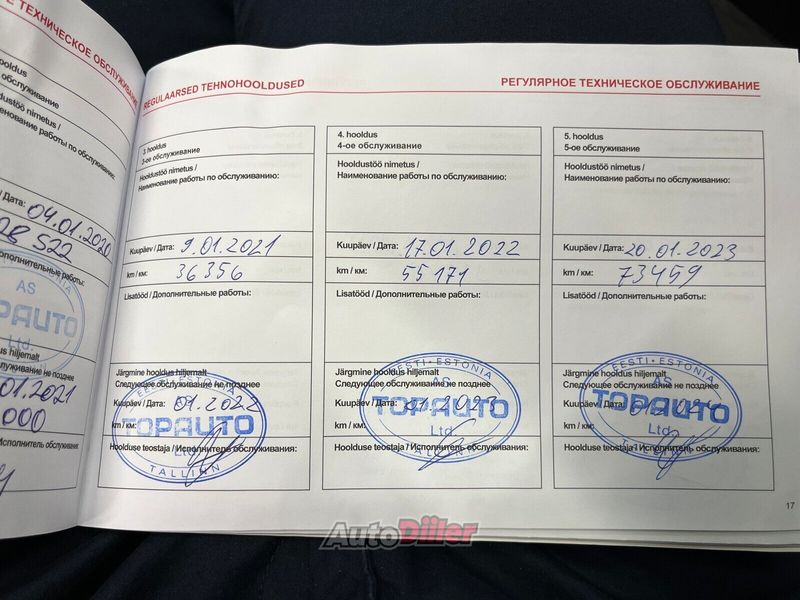 Е ТЕХНИЧЕСКОЕ ОБСЛУЖИВАНИЕ
обслуживание
nimetus /
работы по обслуживанию:
/ Дата: 04.01.2020
28 522
работы:
EESTI · ESTONIA
AS
TOPAUTO
Ltd.
hiljemalt
не позднее
01.2021
000
/ Исполнитель обслуживания
REGULAARSED TEHNOHOOLDUSED
РЕГУЛЯРНОЕ ТЕХНИЧЕСКОЕ ОБСЛУЖИВАНИЕ
3. hooldus
3-ое обслуживание
Hooldustöö nimetus /
Наименование работы по обслуживанию:
Kuupäev / Дата: 9.01.2021
km / км: 36356
Lisatööd / Дополнительные работы:
Järgmine hooldus hiljemalt
Следующее обслуживание не позднее
Kuupäev / Дата: 01.2022
km / км:
Hoolduse teostaja / Исполнитель обслуживания:
EESTI · ESTONIA
AS
TOPAUTO
Ltd.
TALLINN
4. hooldus
4-ое обслуживание
Hooldustöö nimetus /
Наименование работы по обслуживанию:
Kuupäev / Дата: 17.01.2022
km / км: 55171
Lisatööd / Дополнительные работы:
Järgmine hooldus hiljemalt
Следующее обслуживание не позднее
Kuupäev / Дата:
km / км:
Hoolduse teostaja / Исполнитель обслуживания:
EESTI · ESTONIA
AS
TOPAUTO
Ltd.
TALLINN
5. hooldus
5-ое обслуживание
Hooldustöö nimetus /
Наименование работы по обслуживанию:
Kuupäev / Дата: 20.01.2023
km / км: 73459
Lisatööd / Дополнительные работы:
Järgmine hooldus hiljemalt
Следующее обслуживание не позднее
Kuupäev / Дата:
km / км:
Hoolduse teostaja / Исполнитель обслуживания:
EESTI · ESTONIA
AS
TOPAUTO
Ltd.
TALLINN
17
AutoDiller